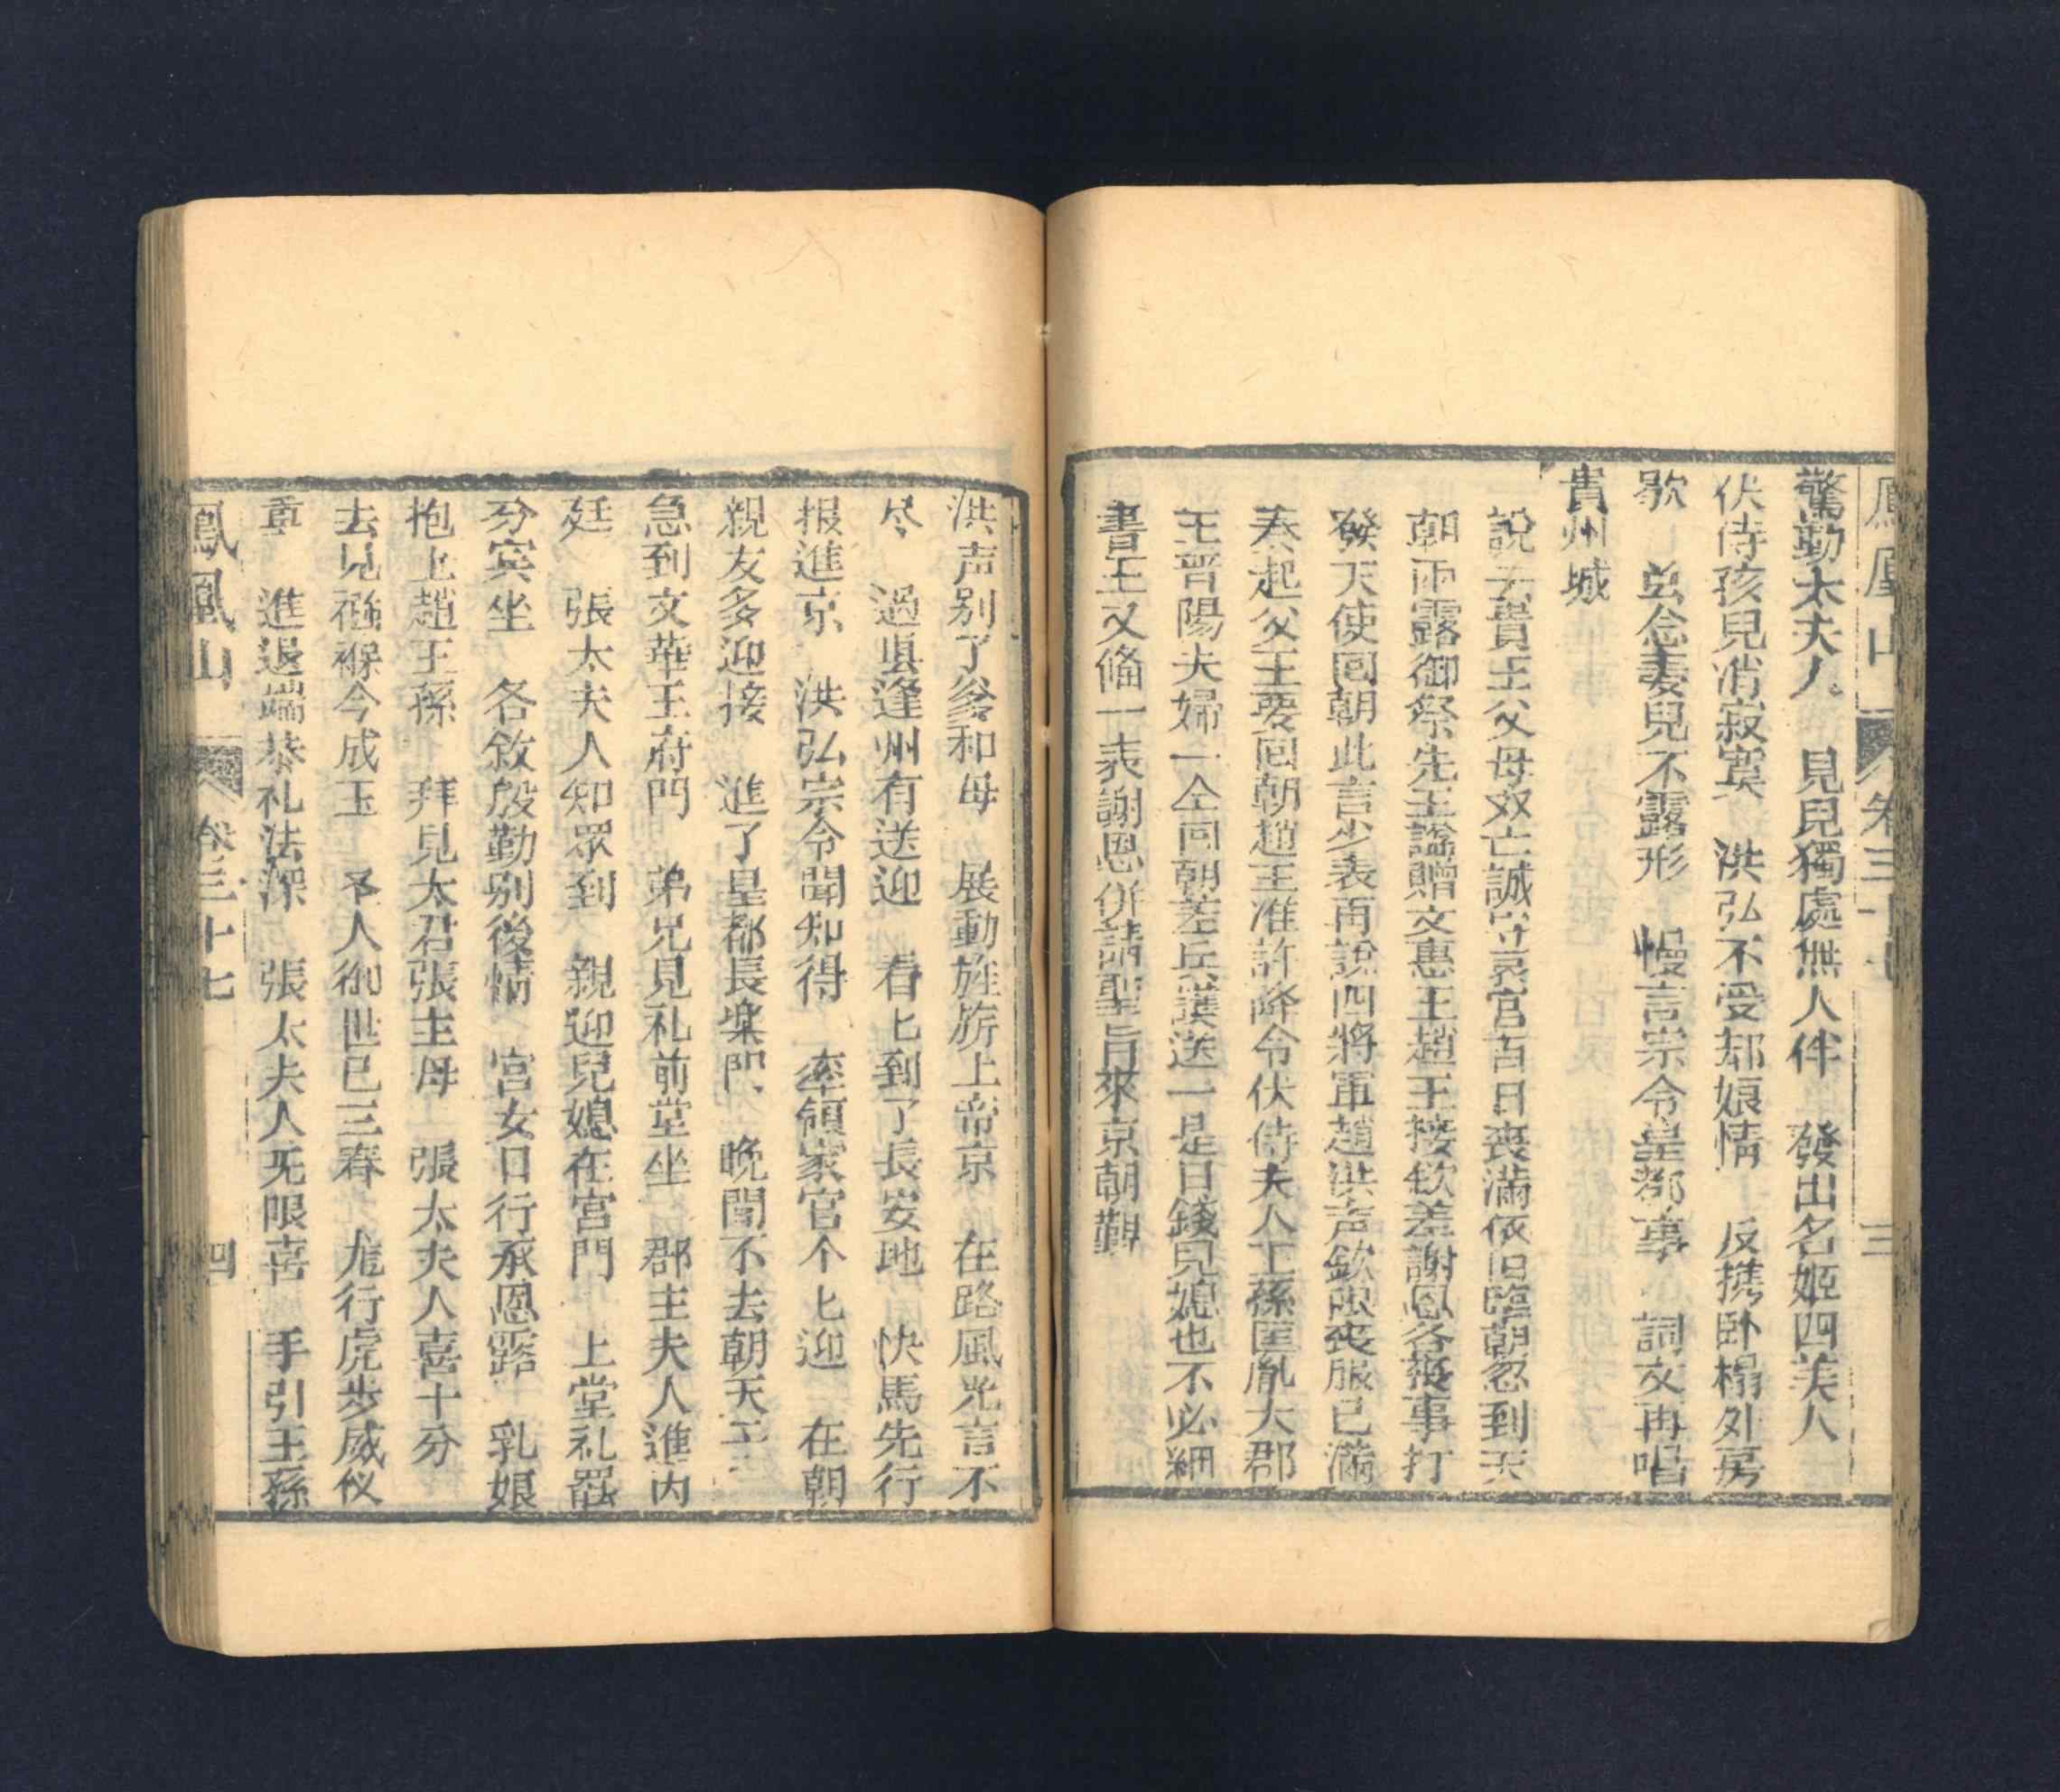 鳳凰山 卷三十七 三
驚動太夫人 見兒獨處無人伴 發出名姬四美人
伏侍孩兒消寂寞 洪弘不受却娘情 反携卧榻外房
歇 並念妻兒不露形 慢言宗令皇都事 詞文再唱
貴州城
說去貴王父母双亡誠守哀宮百日丧滿依旧臨朝忽到天
朝雨露御祭先王謚贈文惠王趙王接欽差謝恩各丧事打
發天使回朝此言少表再說四將軍趙洪声欽限丧服已滿
奏起父王要回朝趙王准許降令伏侍夫人王孫匡胤大郡
王晋陽夫婦一仝回朝差兵護送一是日錢兒媳也不必細
書王又修一表謝恩併請聖旨來京朝覲
洪声别了爹和母 展動旌旂上帝京 在路風光言不
尽 過県逢州有送迎 看匕到了長安地 快馬先行
报進京 洪弘宗令聞知得 率領家官个匕迎 在朝
親友多迎接 進了皇都長楽門 晚間不去朝天王
急到文華王府門 弟兄見礼前堂坐 郡主夫人進内
廷 張太夫人知眾到 親迎兒媳在宮門 上堂礼罷
分宾坐 各敘殷勤别後情 宮女日行承恩露 乳娘
抱上趙王孫 拜見太君張主母 張太夫人喜十分
去見襁褓今成玉 圣人御世已三春 龙行虎步威仪
重 進退端恭礼法深 張太夫人无限喜 手引王孫
鳳凰山 卷三十七 四